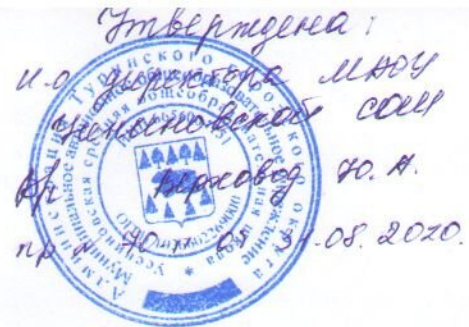 Утверждена:
и.о. директора МАОУ
Усениновской СОШ
Верховод Ю. А.
пр № 70-п от 31.08.2020.
Администрация Туринского городского округа
Муниципальное автономное общеобразовательное учреждение
Усениновская средняя общеобразовательная школа